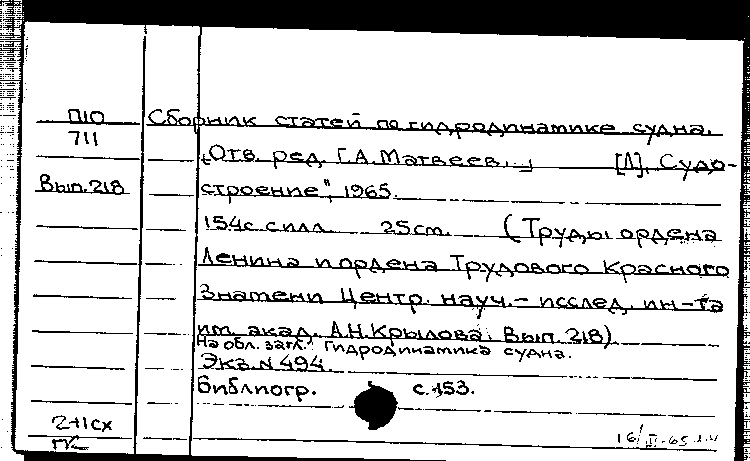 П10 Сборник статей по гидродинамике судна.
711
„Отв. ред. Г.А. Матвеев." [Л], „Судо-
Вып. 218 строение", 1965.
154с. с илл. 25 cm. (Труды ордена
Ленина и ордена Трудового Красного
Знамени Центр. науч.- исслед. ин-та
им. акад. А.Н. Крылова. Вып. 218)
На обл. загл.: Гидродинамика судна.
Экз. N 494.
Библиогр. с. 153.
2+1сх